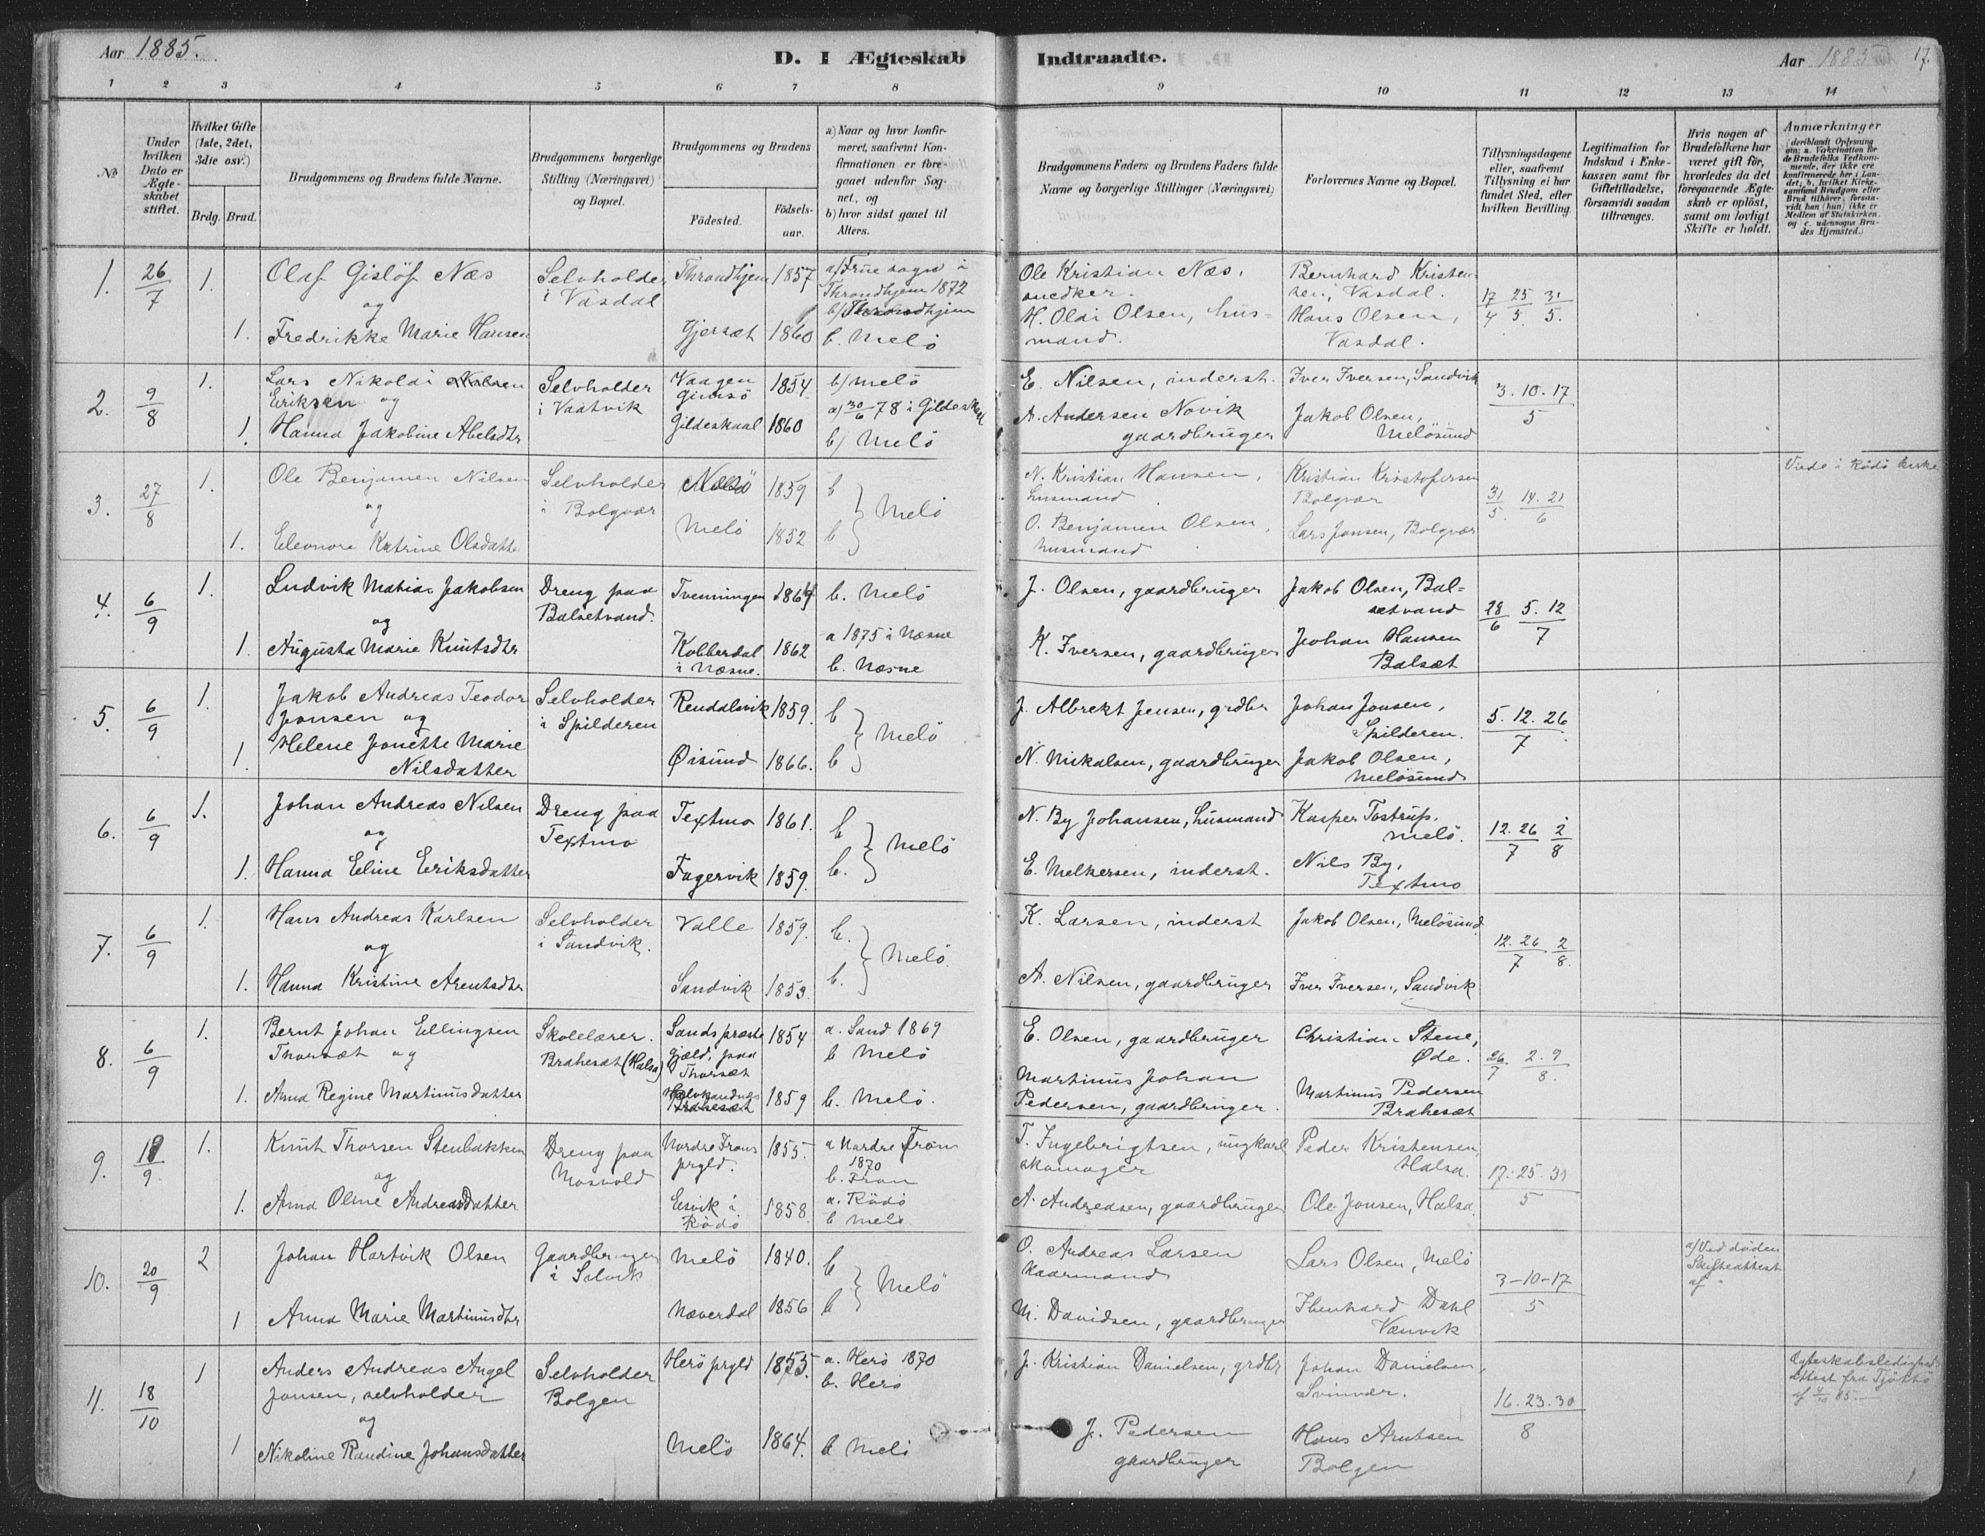 Aar 1885.
D. I Ægteskab Indtraadte.
Aar 1885 17.
1 2 3 4 5 6 7 8 9 10 11 12 13 14
No
Under hvilken Dato er Ægteskabet stiftet.
Hvilket Gifte (1ste, 2det, 3die osv.)
Brdg. Brud.
Brudgommens og Brudens fulde Navne.
Brudgommens borgerlige Stilling (Næringsvei) og Bopæl.
Brudgommens og Brudens
Födested. Födselsaar.
a) Naar og hvor konfirmeret, saafremt Konfirmationen er foregaaet udenfor Sognet, og
b) hvor sidst gaaet til Alters.
Brudgommens Faders og Brudens Faders fulde Navne og borgerlige Stillinger (Næringsvei)
Forlovernes Navne og Bopæl.
Tillysningsdagene eller, saafremt Tillysning ei har fundet Sted, efter hvilken Bevilling.
Legitimation for Indskud i Enkekassen samt for Giftetilladelse, forsaavidt saadan tiltrænges.
Hvis nogen af Brudefolkene har været gift för, hvorledes da det foregaaende Ægteskab er oplöst, samt om lovligt Skifte er holdt.
Anmærkninger (deriblandt Oplysning om: a. Vaksination for de Brudefolks Vedkommende, der ikke ere konfirmerede her i Landet; b. hvilket Kirkesamfund Brudgom eller Brud tilhører, forsaavidt han (hun) ikke er Medlem af Statskirken, og c. udensogns Brudes Hjemsted.)
1. 26/7 1. Olaf Gislöf Næs Selvholder Throndhjem 1857 a/ Frue sogn i Ole Kristian Næs, Bernhard Kristen-
og i Vasdal Throndhjem 1872 snedker. sen, Vasdal. 17/4 25/5 31/5.
b/ Throndhjem H. Oldi Olsen, hus- Hans Olsen,
1. Fredrikke Marie Hansen Gjersæt 1860 b. Melö mand. Vasdal.
2. 9/8 1. Lars Nikolai Nilsen Selvholder Vaagen 1854. b/ Melö E. Nilsen, inderst. Iver Iversen, Sandvik 3.10.17/5
Eriksen og i Vaatvik Gimsö a) 30/6 78 i Gildeskaal A. Andersen Novik Jakob Olsen,
1. Hanna Jakobine Abelsdtr Gildeskaal 1860 b/ Melö gaardbruger Melösund
3. 27/8 1. Ole Benjamen Nilsen Selvholder Melö 1859 b N. Kristian Hansen, Kristian Kristofersen Viede i Rödö kirke
og i Bolgvær Melö husmand Bolgvær 31/5. 14.21/6
1. Eleonore Katrine Olsdatter Melö 1852 b O. Benjamin Olsen, Lars Jonsen, Bolgvær
husmand
4. 6/9 1. Ludvik Mathias Jakobsen Dreng paa Tvenningen 1864 b. Melö J. Olsen, gaardbruger Jakob Olsen, Bal-
og Balsetvand. setvand 28/6 5.12/7
1. Augusta Marie Knutsdtr Kobberdal 1862 a 1875 i Næsne K. Iversen, gaardbruger Johan Hansen
i Næsne. b. Næsne Balsæt
5. 6/9 1. Jakob Andreas Teodor Selvholder Rendalsvik 1859. b J. Albrekt Jensen, grdbr Johan Jonsen, 5.12.26/7
Jonsen og i Spilderen Melö Spilderen.
1. Helene Jonette Marie Øisund 1866. b N. Mikalsen, gaardbruger Jakob Olsen,
Nilsdatter Melösund
6. 6/9 1. Johan Andreas Nilsen Dreng paa Textmo 1861. b N. By Johansen, husmand Kasper Tostrup,
og Textmo Melö Melö. 12.26/7 2/8
1. Hanna Eline Eriksdatter Fagervik 1859. b. E. Melkersen, inderst. Nils By,
Textmo
7. 6/9 1. Hans Andreas Karlsen Selvholder Valle 1859. b. K. Larsen, inderst Jakob Olsen, Melösund
og i Sandvik. Melö. 12.26/7 2/8.
1. Hanna Kristine Arentsdtr Sandvik 1853. b. A. Nilsen, gaardbruger Iver Iversen, Sandvik
8. 6/9 1. Bernt Johan Ellingsen Skolelærer. Sands præste 1854 a. Sand 1869 E. Olsen, gaardbruger Christian Stene,
Thorsæt og Brahesæt (Halsa) gjeld, paa b Melö Øde. 26/7 2.9/8.
Thorsæt Martinus Johan Martinus Pedersen
1. Anna Regine Martinusdatter Brahesæt 1859 b. Melö. Pedersen, gaardbruger. Brahesæt
9. 18/9. 1. Knut Thorsen Stenbakken Dreng paa Nordre Frons 1855. a Nordre Fron T. Ingebrigtsen, ungkarl Peder Kristensen,
og Mosvold prgld. 1870 skomager Halsa. 17.25.31/5
b. Fron
1. Anna Oline Andreasdatter Esvik i 1858. a. Rödö A. Andreasen, gaardbruger Ole Jonsen, Halsa.
Rödö b Melö
10. 20/9 2 Johan Hartvik Olsen Gaardbruger Melö 1840. b O. Andreas Larsen Lars Olsen, Melö a/ Ved döden
i Selvik Melö kaarmand 3-10-17/5 Skifteattest
af "
1 Anna Marie Martinusdtr Næverdal 1856 b M. Davidsen, gaardbruger Ibenhard Dahl
Vænvik
11. 18/10 1 Anders Andreas Angel Selvholder Herö prgld 1855. a. Herö 1870 J. Kristian Danielsen, grdbr Johan Danielsen Ægteskabsledigheds
Jonsen, selvholder Bolgen b. Herö Svinvær. 16.23.30/8 Attest fra Tjöttö
og af 4/10 85.
J. Pedersen Hans Arntsen
1 Nikoline Randine Johansdatter Melö 1864. b Melö gaardbruger Bolgen